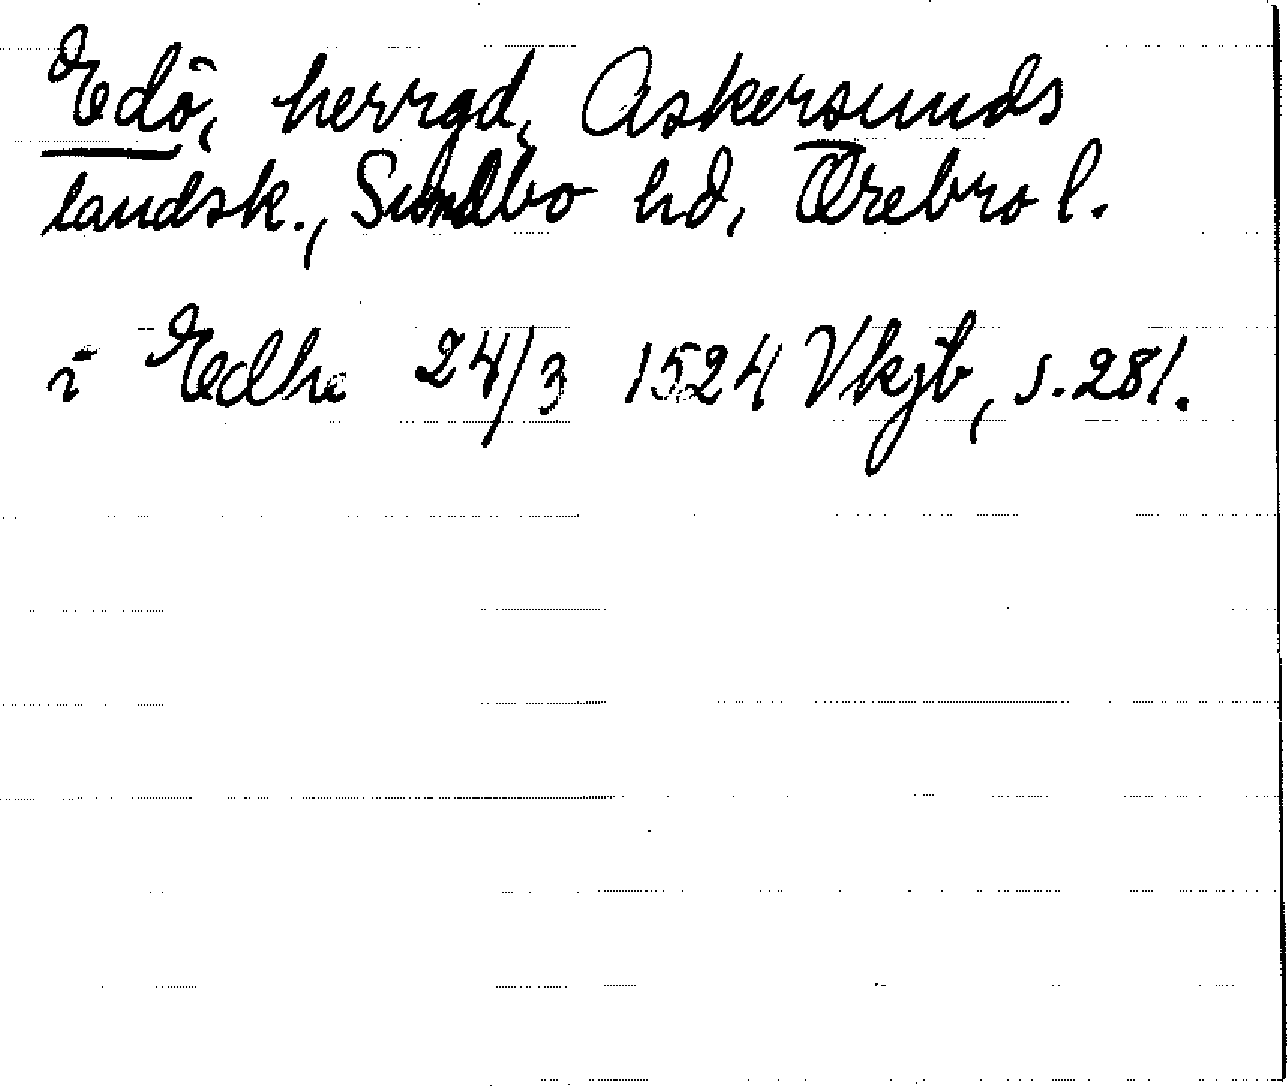 Edö, herrgd, Askersunds
landsk., Sundbo hd, Örebro l.
i Edhe 24/3 1524 Vkjb, s. 281.